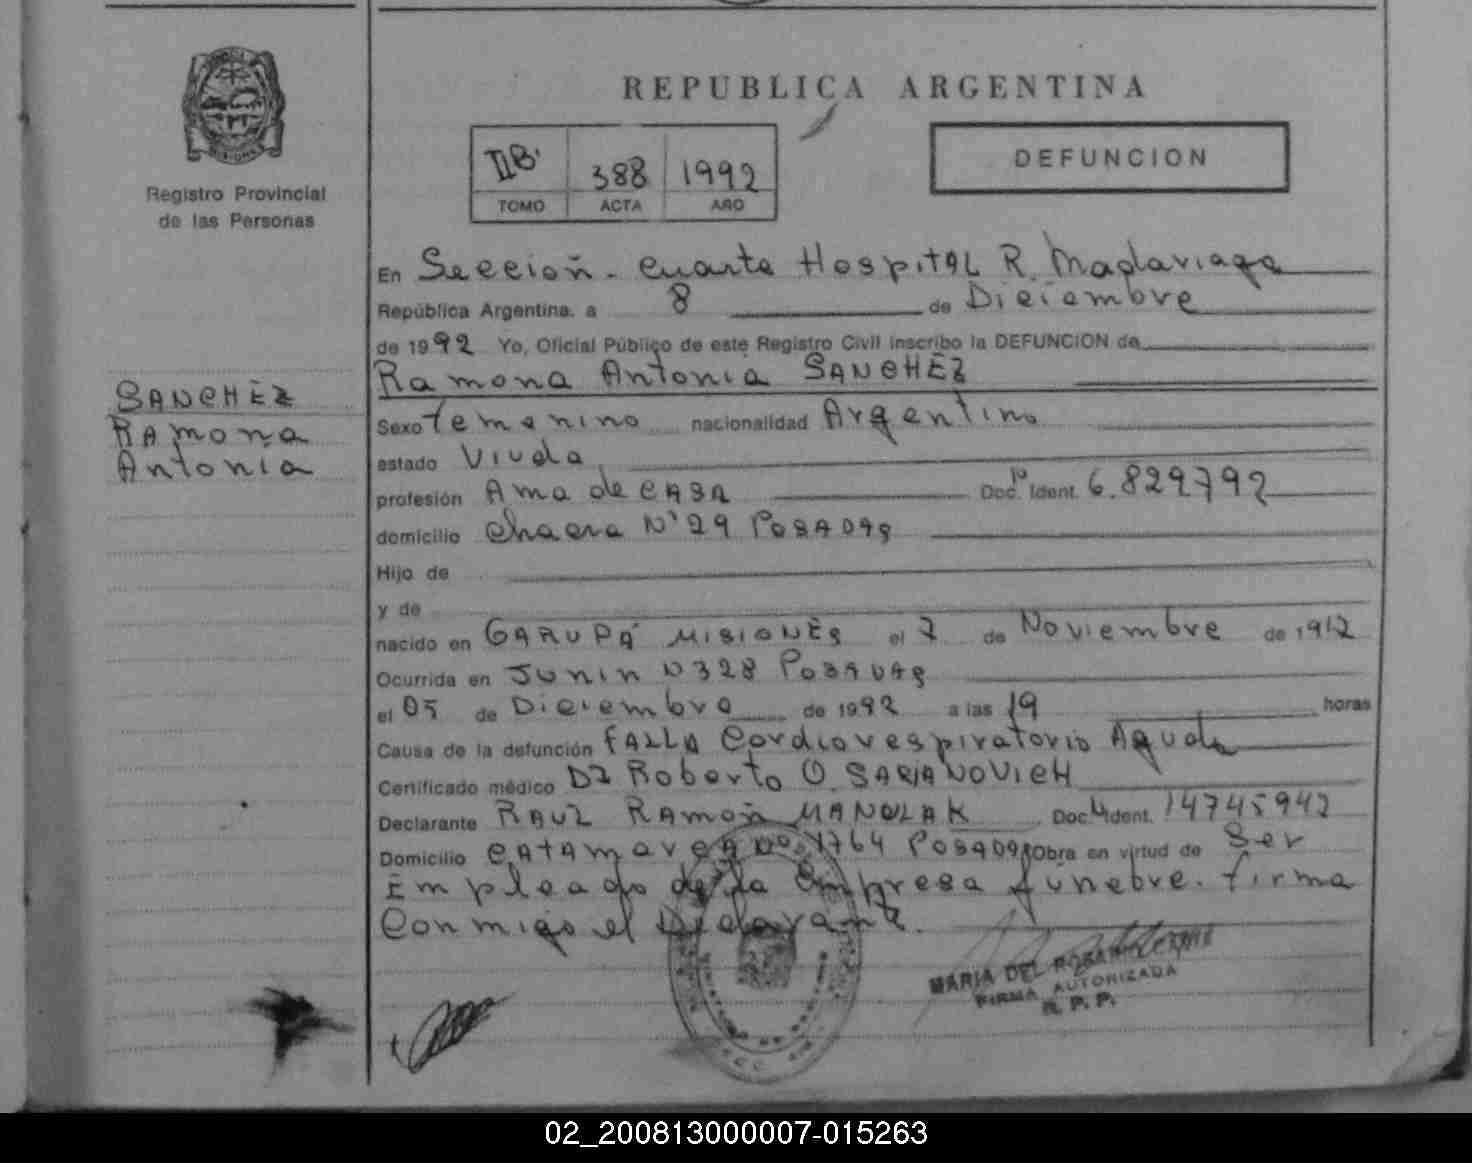 REPUBLICA ARGENTINA
IIB. 388 1992
TOMO ACTA AÑO
DEFUNCION
Registro Provincial
de las Personas
SANCHEZ
RAmona
Antonia
En Sección - Cuarta Hospital R. Madariaga
República Argentina, a 8 de Diciembre
de 1992 Yo, Oficial Público de este Registro Civil inscribo la DEFUNCION de
Ramona Antonia SANCHEZ
Sexo femenino nacionalidad Argentina
estado Viuda
profesión Ama de CASA Doc. Ident. 6.829792
domicilio Chacra N° 29 POSADAS
Hijo de
y de
nacido en GARUPA MISIONES el 7 de Noviembre de 1912
Ocurrida en JUNIN N 328 POSADAS
el 05 de Diciembre de 1992 a las 19 horas
Causa de la defunción FALLA Cardiorespiratorio Aguda
Certificado médico Dr Roberto O. SARJANOVICH
Declarante RAUL RAMON MANOLAK Doc. Ident. 14745942
Domicilio CATAMARCA N° 1764 POSADAS Obra en virtud de Ser
Empleado de la Empresa fúnebre. firma
Conmigo el Declarante.
MARIA DEL
FIRMA AUTORIZADA
R. P. P.
02_200813000007-015263